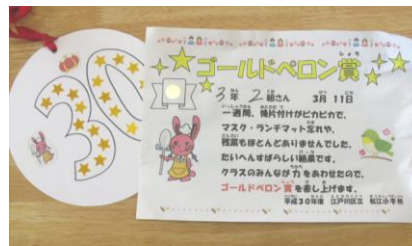 30
ゴールドペロン賞
しょう
3年 2組さん 3月 11日
一週間、後片付けがピカピカで、
マスク・ランチマット忘れや、
残菜もほとんどありませんでした。
たいへんすばらしい結果です。
クラスのみんなが力をあわせたので、
ゴールドペロン賞を差し上げます。
平成30年度 江戸川区立 松江小学校